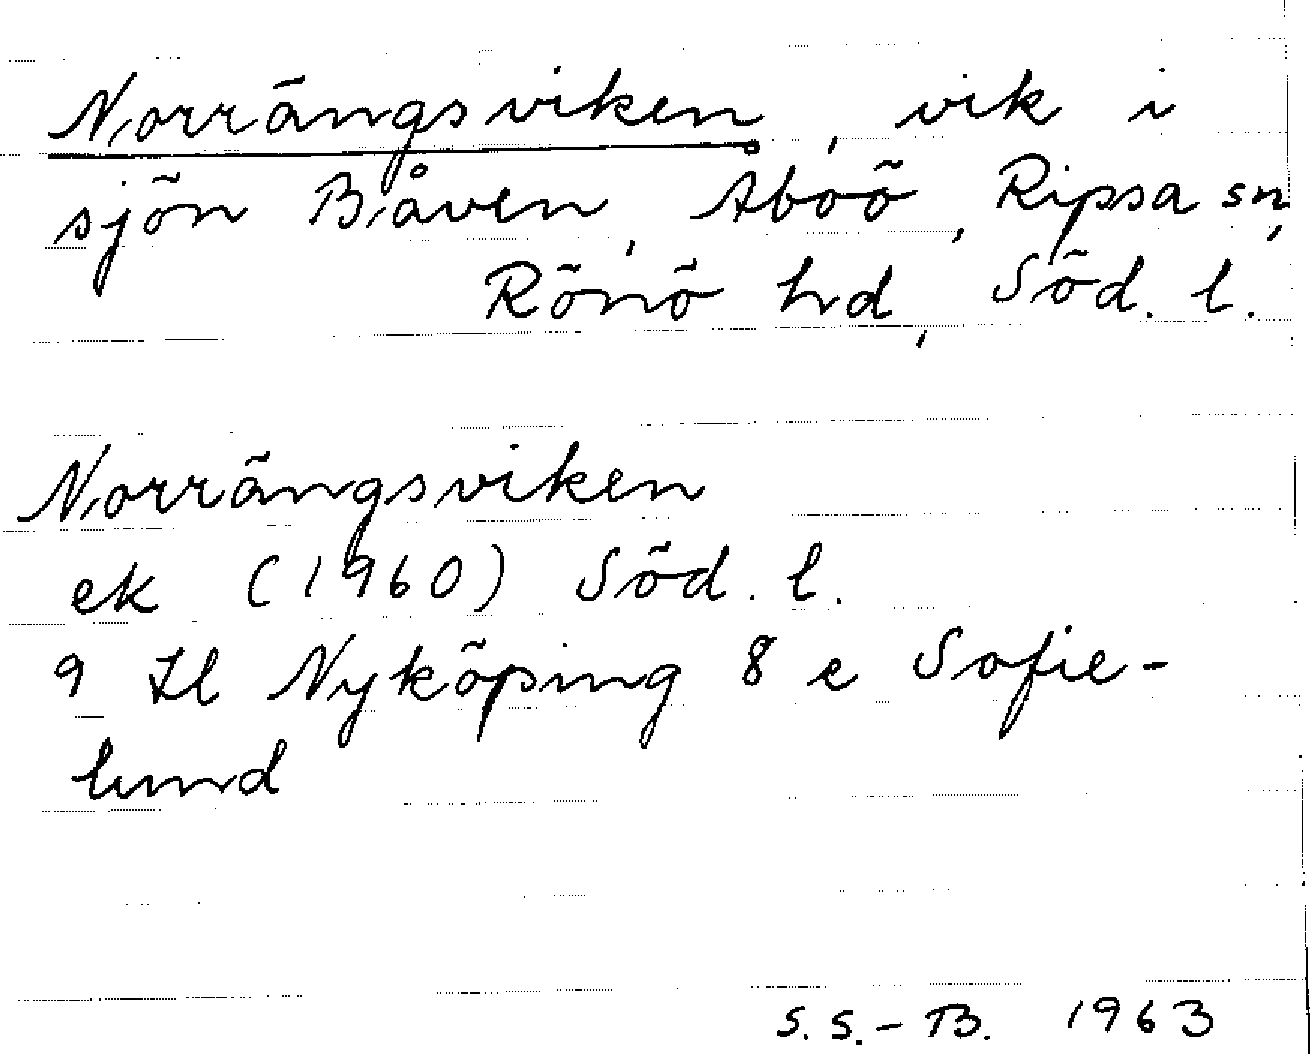 Norrängsviken, vik i
sjön Båven, Aboö, Ripsa sn,
Rönö hd, Söd. l.
Norrängsviken
ek (1960) Söd. l.
9 Il Nyköping 8 e Sofie-
lund
S. S.-B. 1963